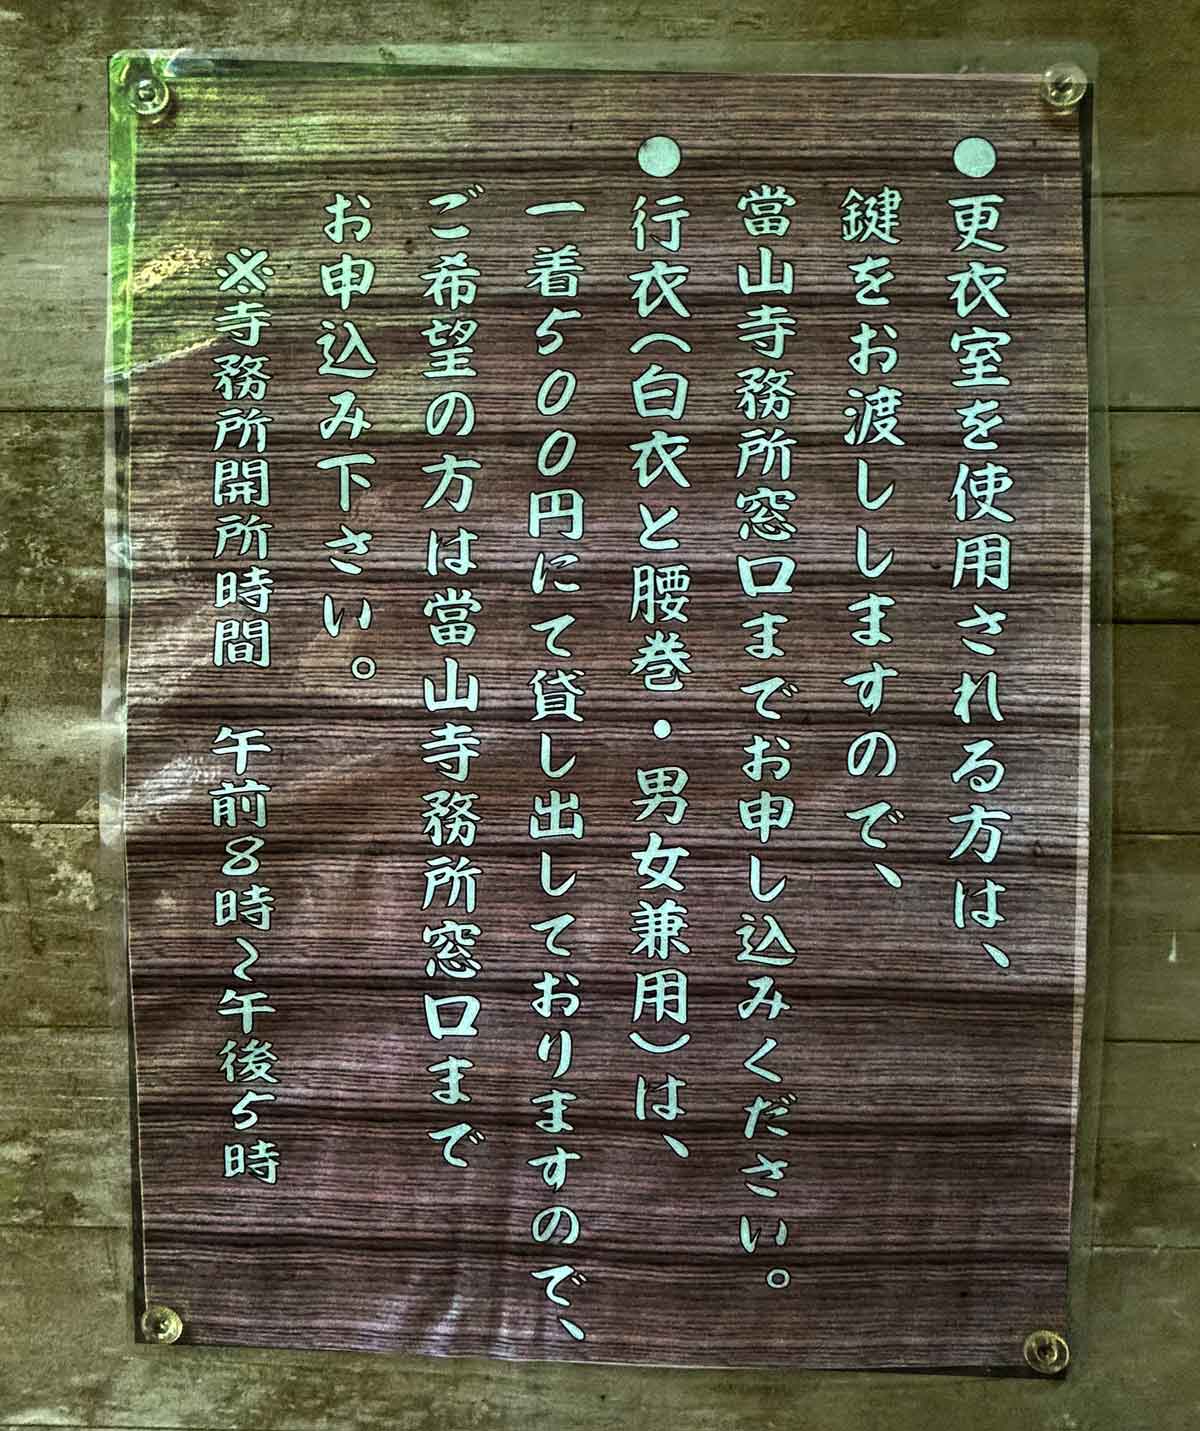 ●更衣室を使用される方は、
鍵をお渡ししますので、
當山寺務所窓口までお申し込みください。
●行衣（白衣と腰巻・男女兼用）は、
一着５００円にて貸し出しておりますので、
ご希望の方は當山寺務所窓口まで
お申込み下さい。
※寺務所開所時間　午前８時～午後５時